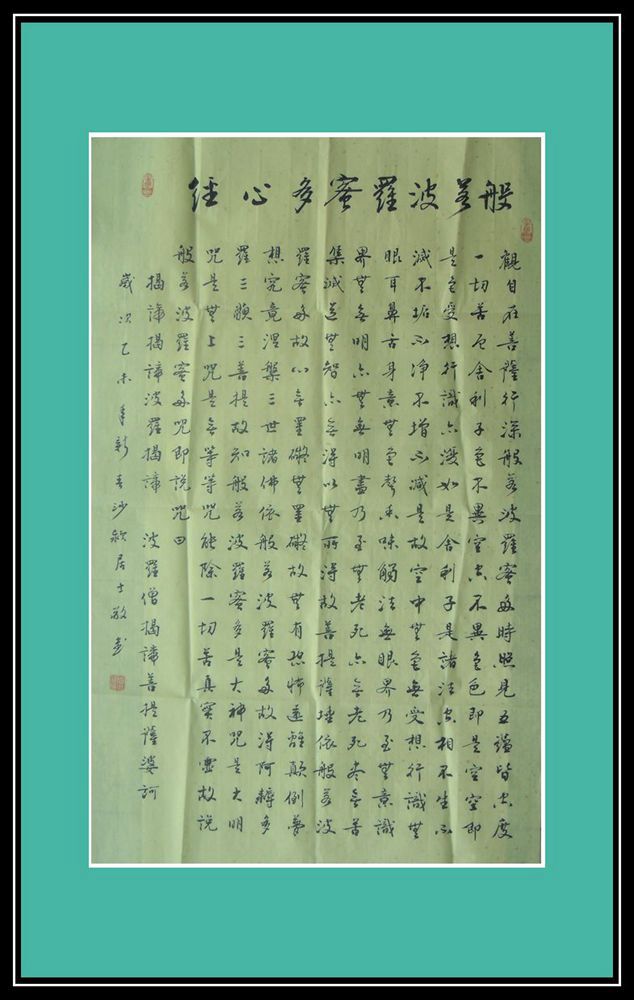 般若波羅蜜多心経
觀自在菩薩行深般若波羅蜜多時照見五蘊皆空度
一切苦厄舍利子色不異空空不異色色即是空空即
是色受想行識亦復如是舍利子是諸法空相不生不
滅不垢不淨不增不減是故空中無色無受想行識無
眼耳鼻舌身意無色聲香味觸法無眼界乃至無意識
界無無明亦無無明盡乃至無老死亦無老死盡無苦
集滅道無智亦無得以無所得故菩提薩埵依般若波
羅蜜多故心無罣礙無罣礙故無有恐怖遠離顛倒夢
想究竟涅槃三世諸佛依般若波羅蜜多故得阿耨多
羅三藐三菩提故知般若波羅蜜多是大神咒是大明
咒是無上咒是無等等咒能除一切苦真實不虛故說
般若波羅蜜多咒即說咒曰
揭諦揭諦波羅揭諦 波羅僧揭諦菩提薩婆訶
歲次乙未年新春沙居士敬書